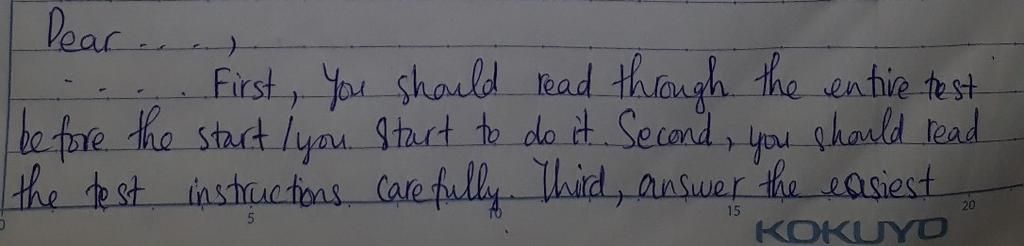 Dear ....,
.... First, You should read through the entire test
before the start / you start to do it. Second, you should read
the test instructions carefully. Third, answer the easiest
5 10 15 20
KOKUYO